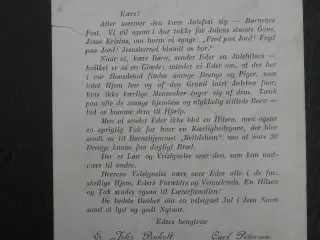 Kære!
Atter nærmer den kære Julefest sig — Børnenes
Fest. Vi vil ogsaa i Aar takke for Julens største Gave,
Jesus Kristus, om hvem vi synge "Fred paa Jord! Fryd
paa Jord! Jesusbarnet blandt os bor."
Naar vi, kære Børn, sender Eder en Julehilsen —
købt er en Glæde; mindes vi Eder om, at der her i
vor Hovedstad findes mange Drenge og Piger, som
intet Hjem har og af den Grund intet Juletræ faar,
hvis ikke kærlige Mennesker tager sig af dem. Tænk
paa alle de mange hjemløse og ulykkelig stillede Børn —
lad os komme dem til Hjælp.
Men vi sender Eder ikke blot en Hilsen, men ogsaa
en oprigtig Tak for hver en Kærlighedsgave, der blev
sendt til os til Børnehjemmet „Bethlehem", saa at vore 30
Drenge kunne faa dagligt Brød.
Der er Løn og Velsignelse over den, som kan und-
være til andre.
Herrens Velsignelse være over Eder alle i de for-
skellige Hjem, Eders Forældre og Vennekreds. En Hilsen
og Tak sendes ogsaa til
De bedste Ønsker om en velsignet Jul i Jesu Navn
samt et lyst og godt Nytaar.
Eders hengivne
E. Carl Petersen.